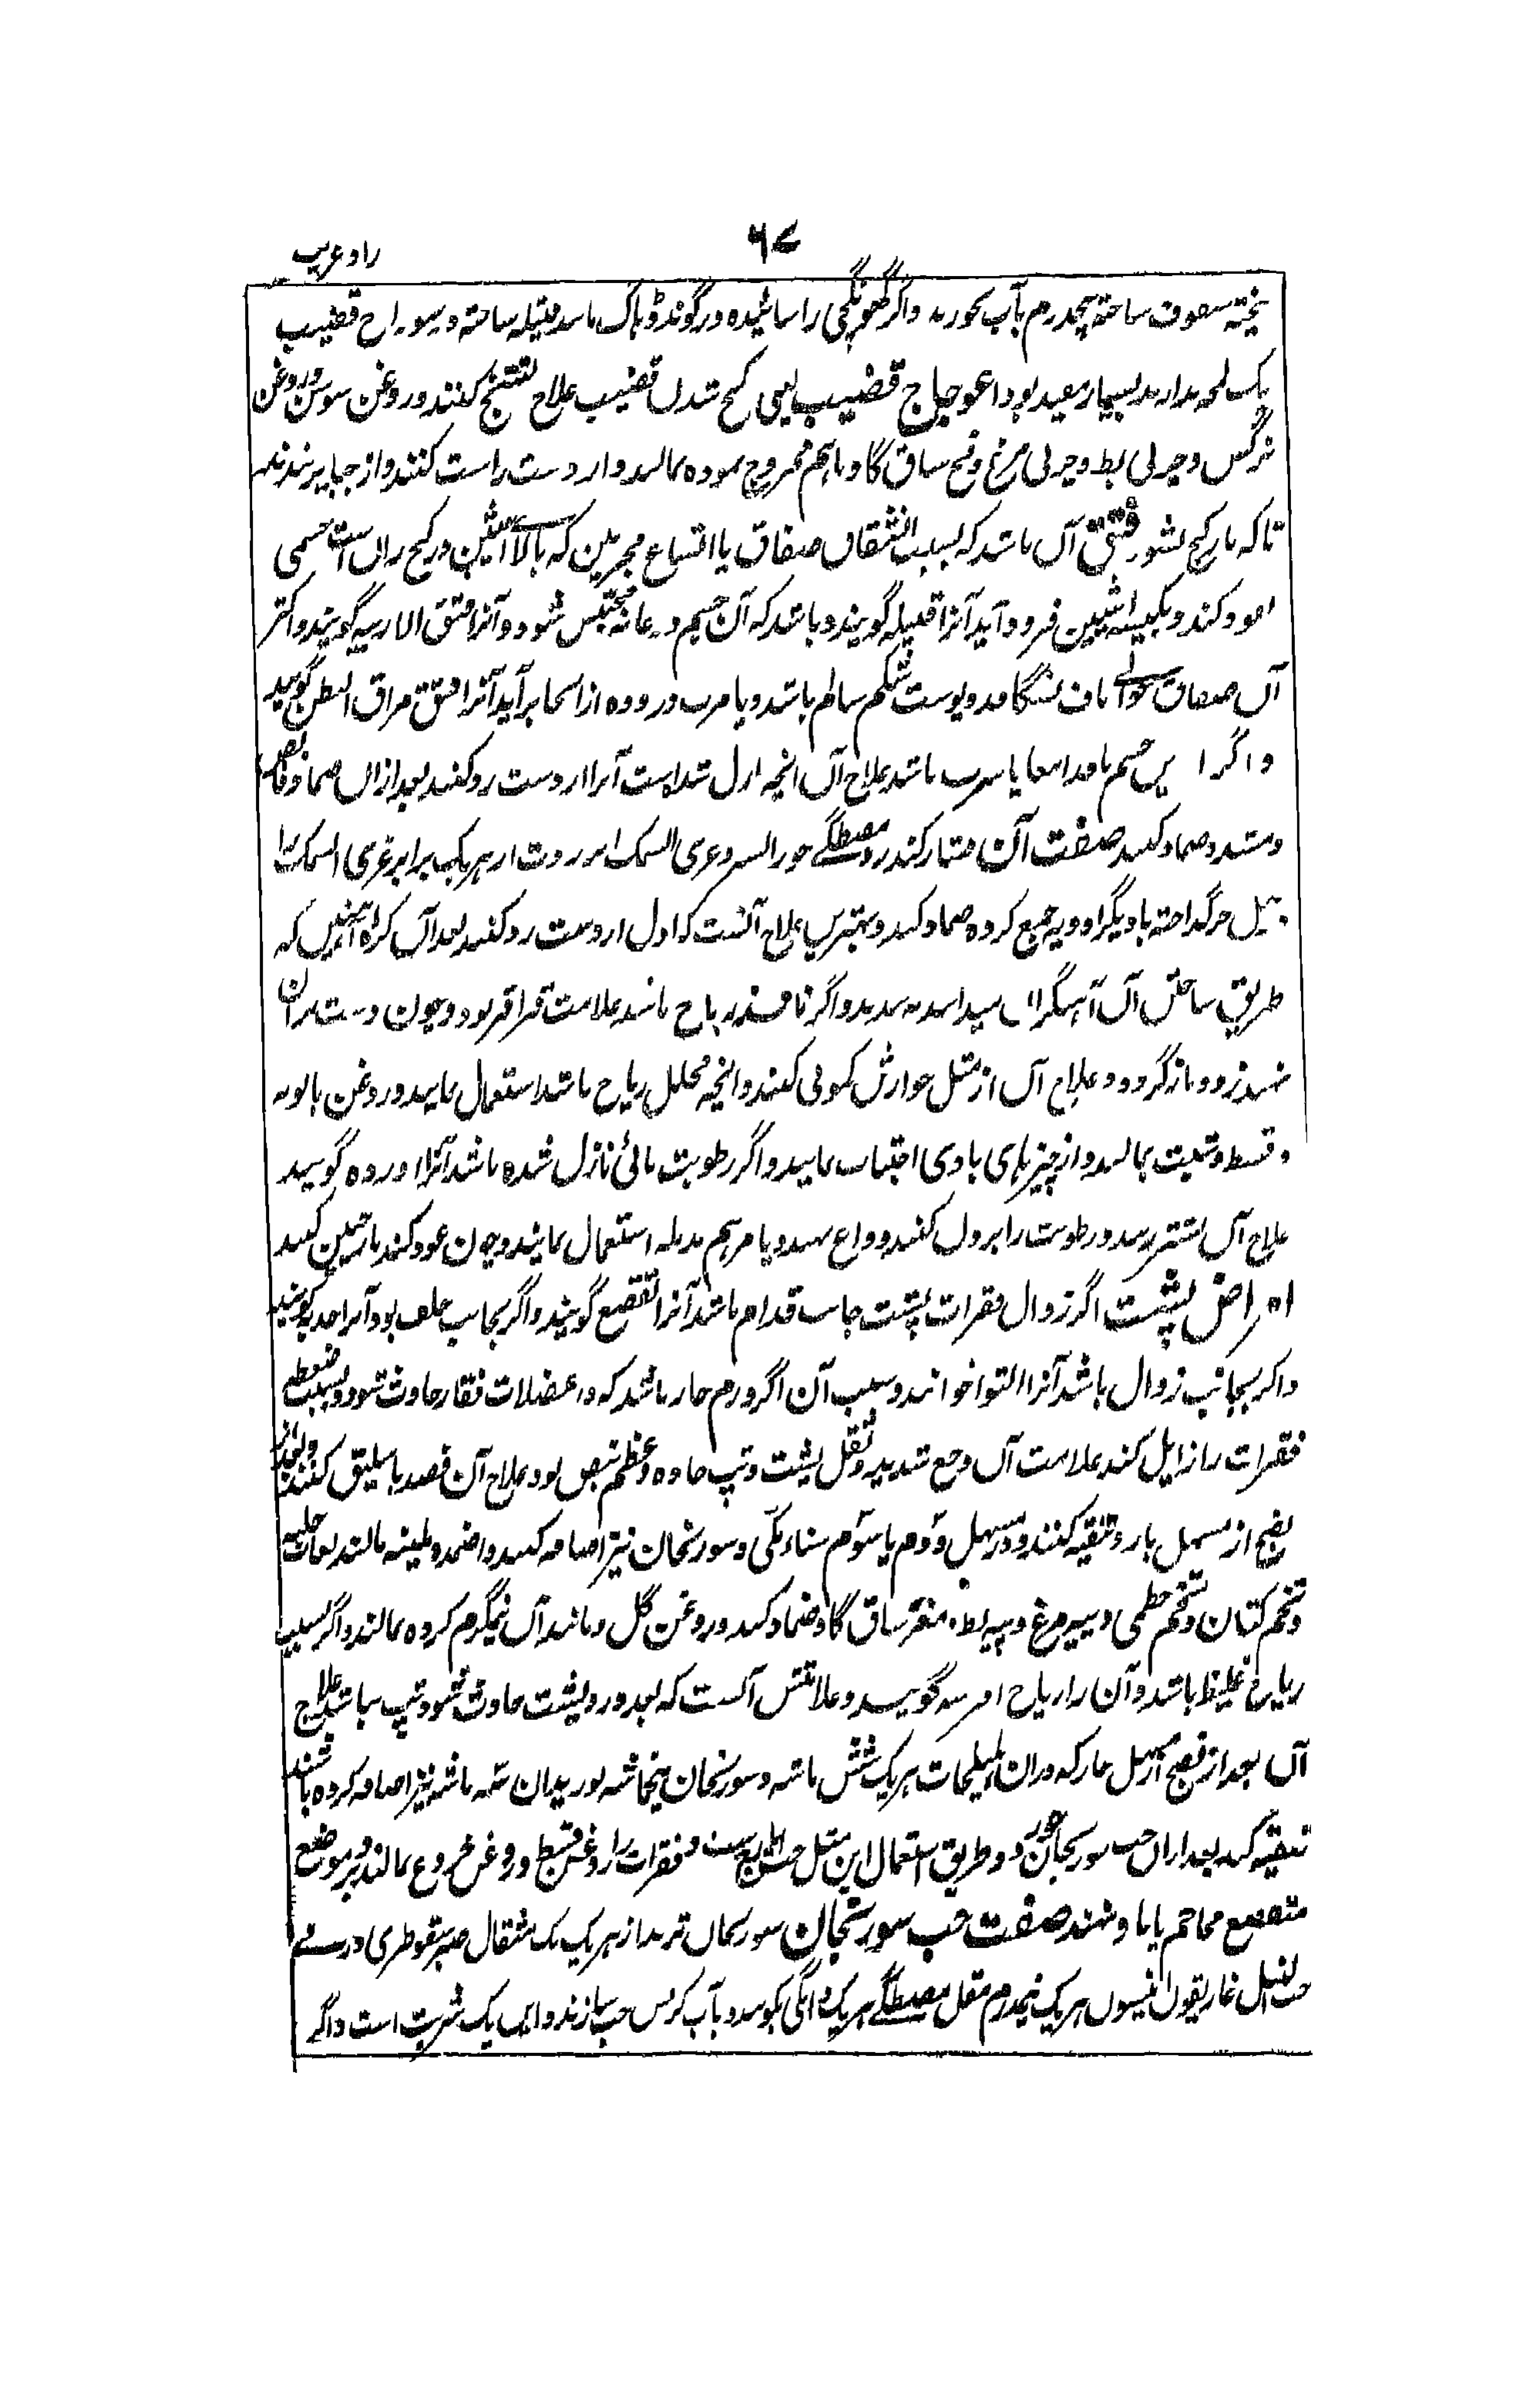 ۶۷
زاد غریب
پخته سفوف ساخته پنجدرم بآب بخورند واگر گھونگچی را سائیده در گوند ڈہاک ماسد فتیله ساخته در سوراخ قضیب
یک لحه بدارند بسیار مفید بود اعوجاج قضیب یعنی کج شدن قضیب علاج تشنج کنند و روغن سوسن و روغن
نرگس و چربی بط و چربی مرغ و مخ ساق گاو باہم ممزوج نموده بمالند و از دست راست کنند و از جبایر بندند
تا که باز کج نشود فتق آن باشد که بسبب انشقاق صفاق یا اتساع مجریین که بالای انثیین در کنج ران است جسمی
فرود آید آنرا قلیله گویند و باشد که آن جسم در عانه محتبس شود و آنرا فتق الاربیه گویند و اکثر
آن صفاق حوالی ناف بشگافد و پوست شکم سالم باشد و یا ثرب و روده از انجا برآید آنرا فتق مراق البطن گویند
و اگر این جسم نافذ امعا یا ثرب باشد علاج آن انچه نازل شده است آنرا از دست رد کنند بعد ازان ضماد
صفت آن کندر مصطگے جوز السرو غری السمک انزروت از هریک برابر غری السمک را
گداخته با دیگر ادویه جمع کرده ضماد کنند و بهترین علاج آنست که اول از دست رد کنند بعد آن کره آهنین که
طریق ساختن آن آهنگران میدانند به بندند و اگر نافذ ریاح باشد علامت قراقر بود و چون دست بران
نهند زود باز گردد و علاج آن از مثل جوارش کمونی کنند و انچه محلل ریاح باشد استعمال نمایند و روغن بابونه
و قسط و شبت بمالند و از چیزهای بادی اجتناب نمایند و اگر رطوبت مائی نازل شده باشد آنرا ادره گویند
علاج آن بنشتر زنند و رطوبت را برون کنند و داغ نهند و یا مرہم مدمله استعمال نمایند و چون عود کند باز همین کنند
امراض پشت اگر زوال فقرات پشت جانب قدام باشد آنرا تقصع گویند و اگر بجانب خلف بود آنرا حدبه گویند
و اگر بجانب زوال باشد آنرا التوا خوانند و سبب آن اگر ورم حار باشد که در عضلات فقار حادث شود و بسبب ضغط
فقرات را زایل کند علامت آن وجع شدید و ثقل پشت و تپ حاده و عظم نبض بود علاج آن فصد باسلیق کنند و بعد از
نضج از مسهل بارد تنقیه کنند و در مسهل دوم یا سوم سناء مکی و سورنجان نیز اضافه کنند و اضمده ملینه مالند لعاب حلبه
و تخم کتان و تخم خطمی و پیه مرغ و پیه بط و مغز ساق گاو ضماد کنند و روغن گل و مانند آن نیمگرم کرده بمالند و اگر بسبب
ریاح غلیظ باشد و آن را ریاح افرسه گویند و علامتش آنست که بعد درد پشت حادث شود و تپ نباشد علاج
آن بعد از نضج از مسهل حار که دران هلیلجات هریک شش ماشه و سورنجان پنجماشه بوزیدان سه ماشه نیز اضافه کرده باشند
تنقیه کنند بعد ازان حب سورنجان خورد و طریق استعمال این مثل حب ایارج ست و فقرات را روغن قسط و روغن خروع بمالند و بر موضع
متقصع محاجم یابا و نهند صفت حب سورنجان سورنجان تربد از هریک یک مثقال صبر سقوطری درمے
حب النیل غاریقون انیسون هریک نیمدرم مقل مصطگے هریک دانگی بکوبند و بآب کرفس حب سازند و این یک شربت است و اگر